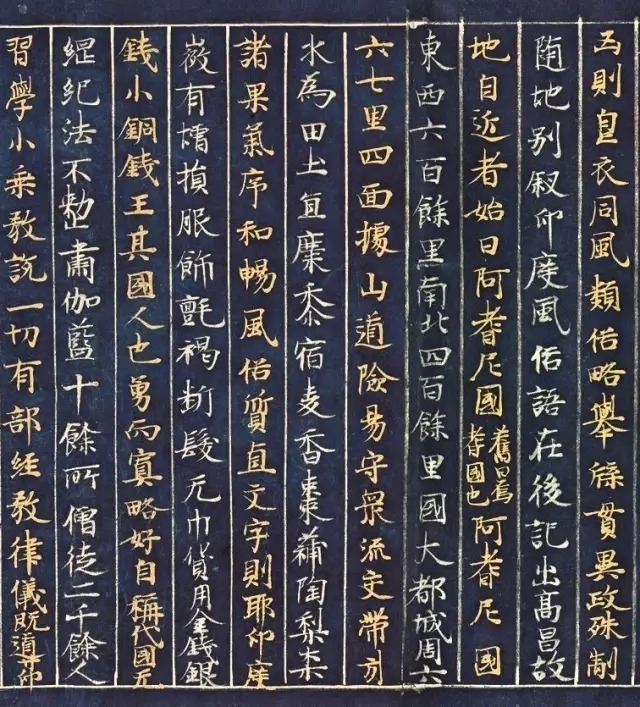 凶則皀衣同風類俗略舉條貫異政殊制
随地別叙印度風俗語在後記出高昌故
地自近者始曰阿耆尼國舊曰焉耆國也阿耆尼國
東西六百餘里南北四百餘里國大都城周六
六七里四面據山道險易守衆流交帶引
水為田土宜糜黍宿麦香棗蒲陶梨柰
諸果氣序和暢風俗質直文字則取印度
微有增損服飾氈褐断髮无巾貨用金錢銀
錢小銅錢王其國人也勇而寡略好自稱代國无
綱紀法不整肅伽藍十餘所僧徒二千餘人
習學小乗教説一切有部經教律儀既遵印